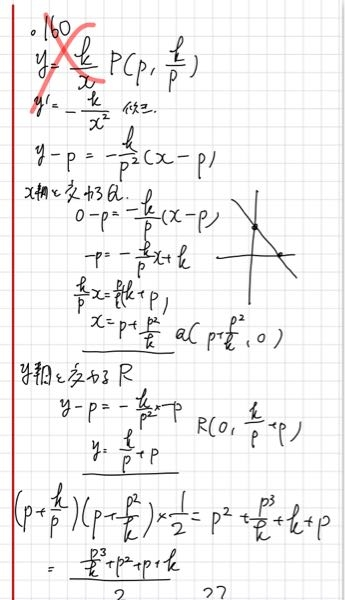 ○160
y = k/x P(p, k/p)
y' = -k/x²
y-p = -k/p²(x-p)
x軸と交わるQ.
0-p = -k/p(x-p)
-p = -k/p x+k
x = p+p²/k Q(p+p²/k, 0)
y軸と交わるR
y-p = -k/p² × -p
y = k/p+p R(0, k/p+p)
(p+k/p)(p+p²/k)×1/2 = p²+p³/k+k+p
= (p³/k+p²+p+k)/2